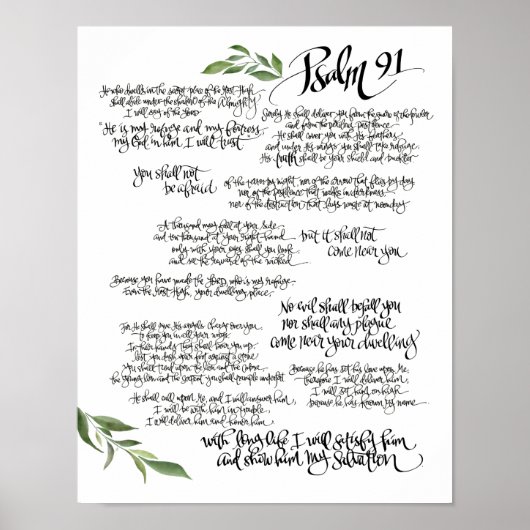 Psalm 91
He who dwells in the secret place of the Most High
shall abide under the shadow of the Almighty
I will say of the LORD
"He is my refuge and my fortress
my God, in him I will trust
Surely He shall deliver you from the snare of the fowler
and from the perilous pestilence
He shall cover you with His feathers
and under His wings you shall take refuge
His truth shall be your shield and buckler
You shall not
be afraid
of the terror by night nor of the arrow that flies by day
nor of the pestilence that walks in darkness
nor of the destruction that lays waste at noonday
A thousand may fall at your side
and ten thousand at your right hand
but it shall not
come near you
only with your eyes shall you look
and see the reward of the wicked
Because you have made the LORD, who is my refuge
Even the Most High, your dwelling place
No evil shall befall you
nor shall any plague
come near your dwelling
For He shall give His angels charge over you
to keep you in all your ways
In their hands they shall bear you up
lest you dash your foot against a stone
You shall tread upon the lion and the cobra
the young lion and the serpent you shall trample underfoot
Because he has set his love upon Me
therefore I will deliver him
I will set him on high
because he has known my name
He shall call upon Me, and I will answer him
I will be with him in trouble
I will deliver him and honor him
with long life I will satisfy him
and show him my salvation